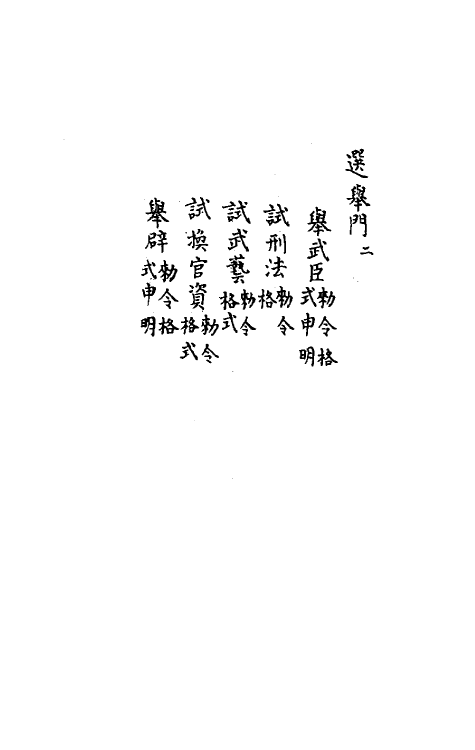 選舉門二
舉武臣勑令格式申明
試刑法勑令格
試武藝勑令格式
試換官資勑令格式
舉辟勑令格式申明